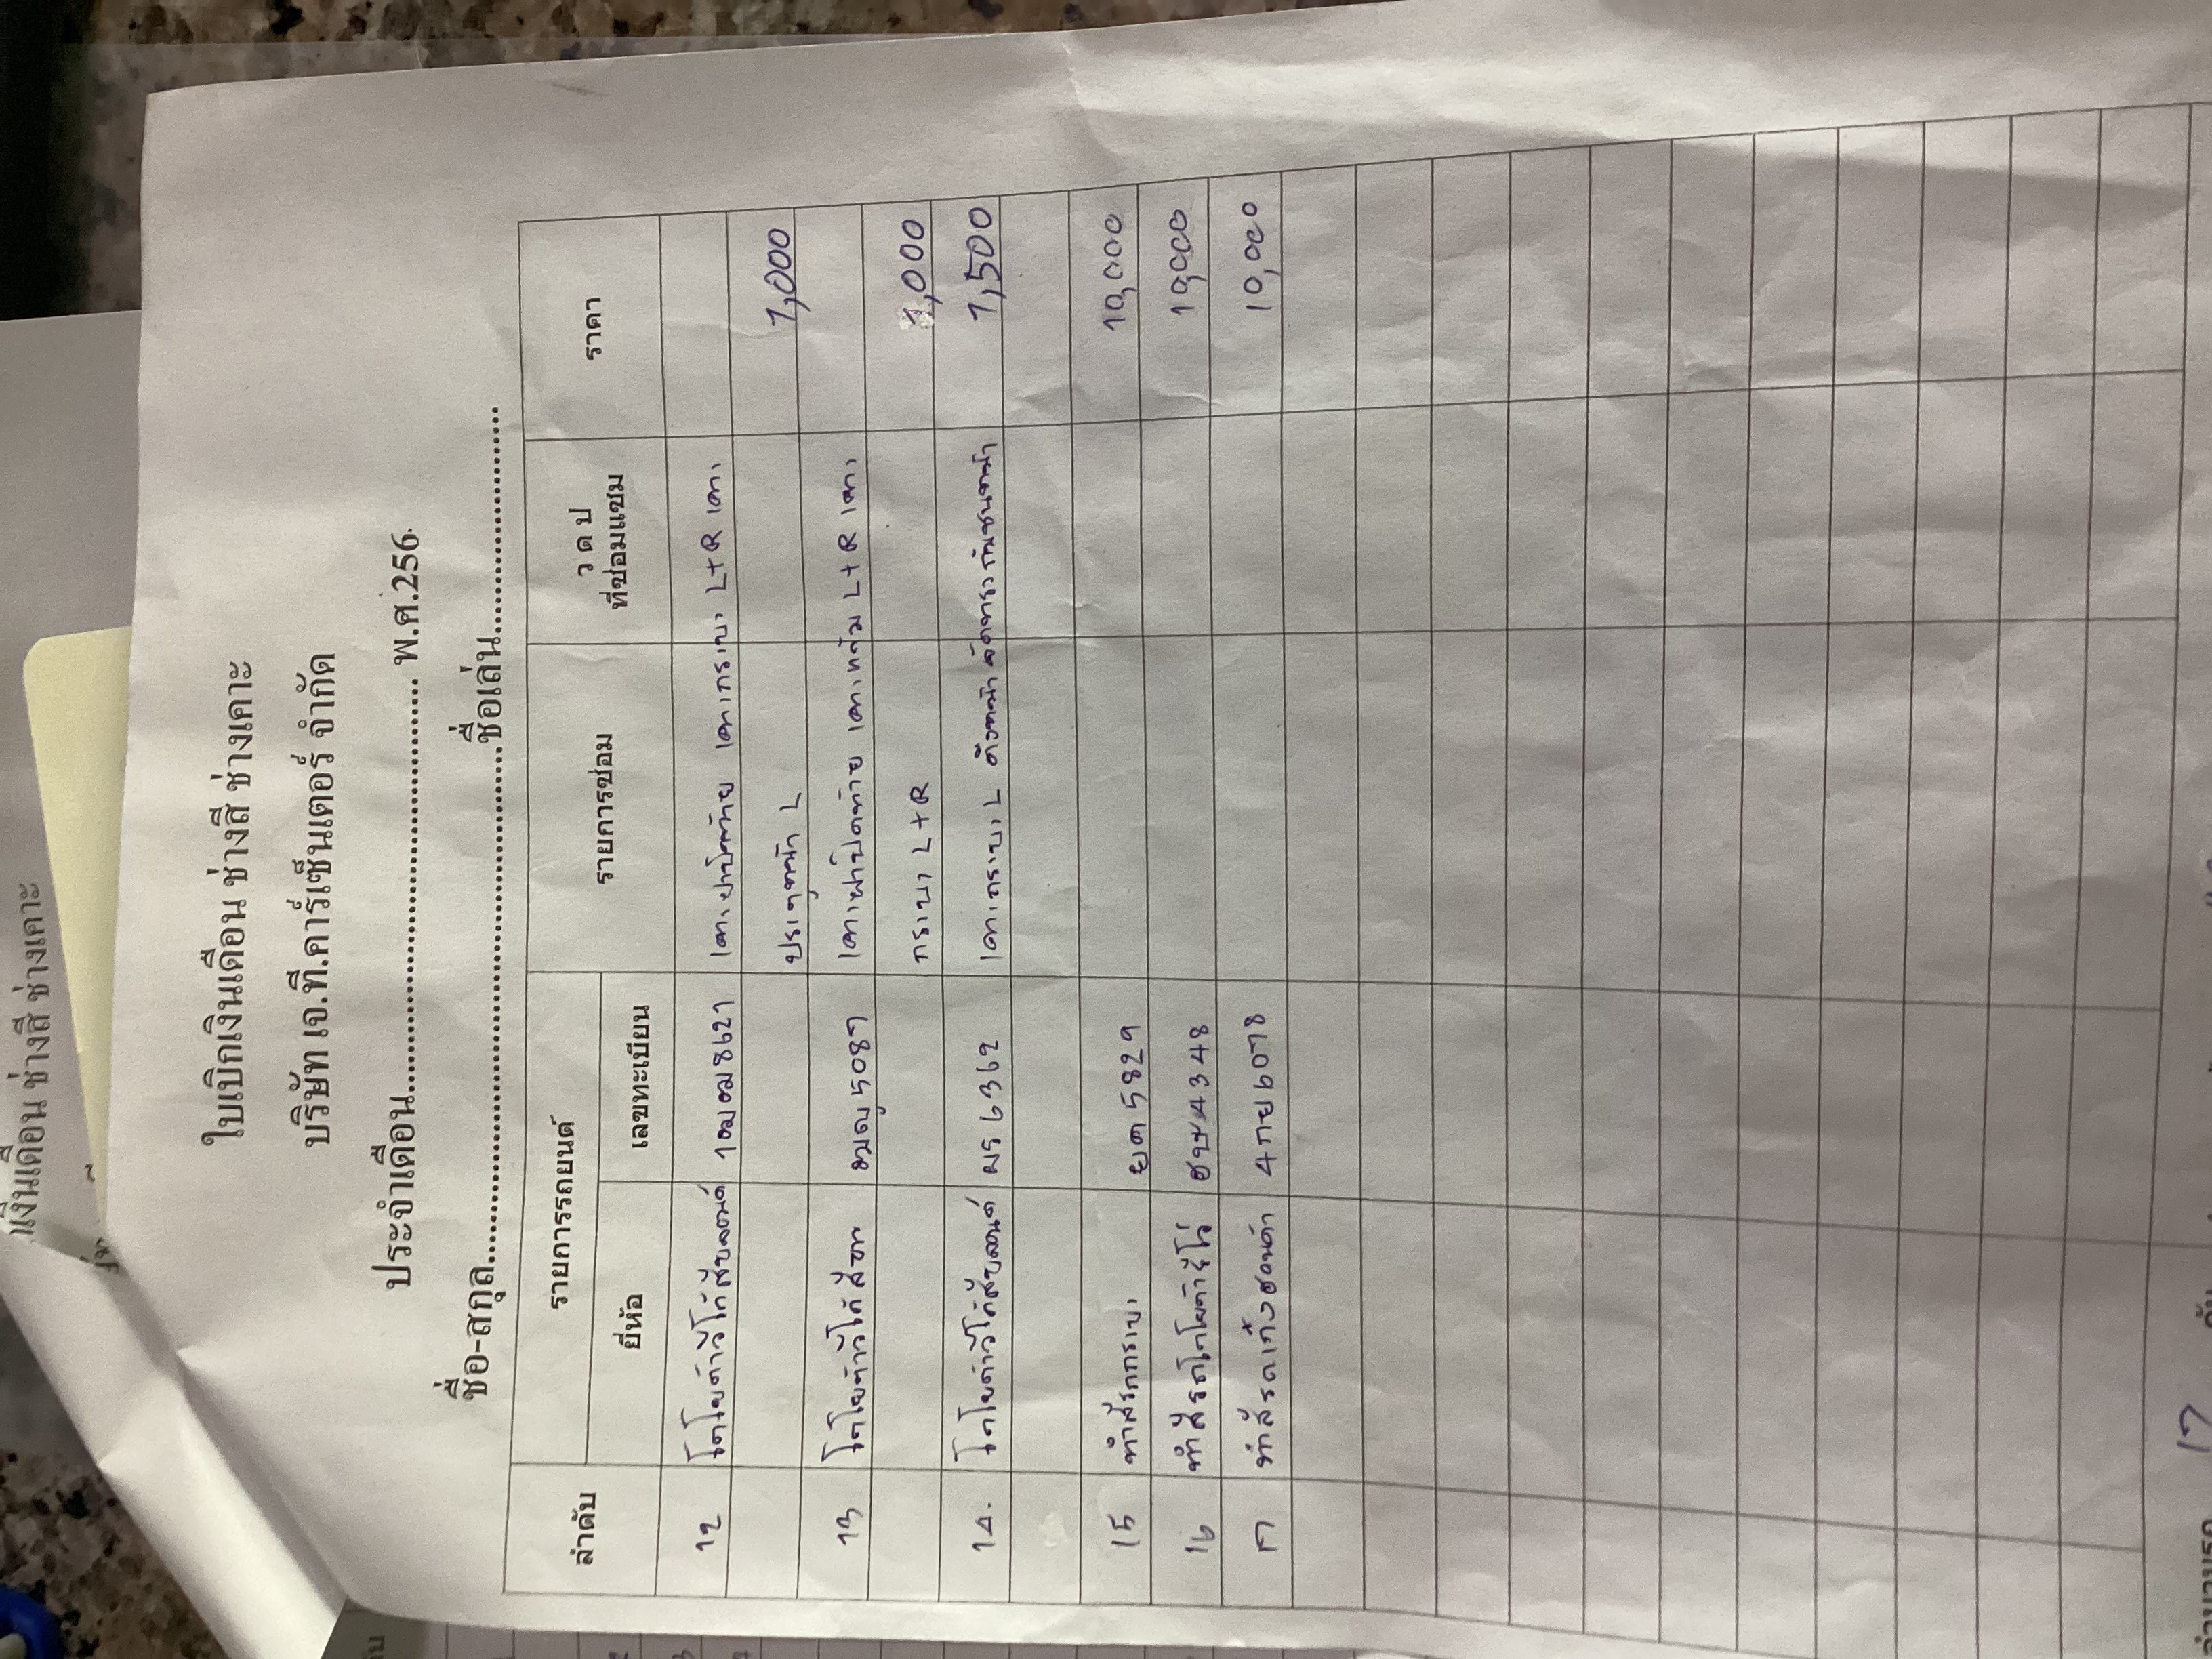 ใบเบิกเงินเดือน ช่างสี ช่างเคาะ
บริษัท เจ.ที.คาร์เซ็นเตอร์ จำกัด
ประจำเดือน.................... พ.ศ.256
ชื่อ-สกุล....................ชื่อเล่น....................
ลำดับ รายการรถยนต์ รายการซ่อม ว ด ป ที่ซ่อมแซม ราคา
ยี่ห้อ เลขทะเบียน
12 โตโยต้าวีโก้ 1ฒฒ8621 เคาะฝาปิดท้าย เคาะกระบะ L+R เคาะ
ประตูหน้า L 1,000
13 โตโยต้าวีโก้ 5087 เคาะฝาปิดท้าย L+R เคาะ
กระบะ L+R 1,000
14. โตโยต้าวีโก้ ผร 6362 เคาะกระบะ L 1,500
15 ทำสีรถกระบะ ยต 5829 10,000
16 ทำสีรถโตโยต้า 4348 10,000
17 ทำสีรถเก๋งฮอนด้า 4กย 6078 10,000
17